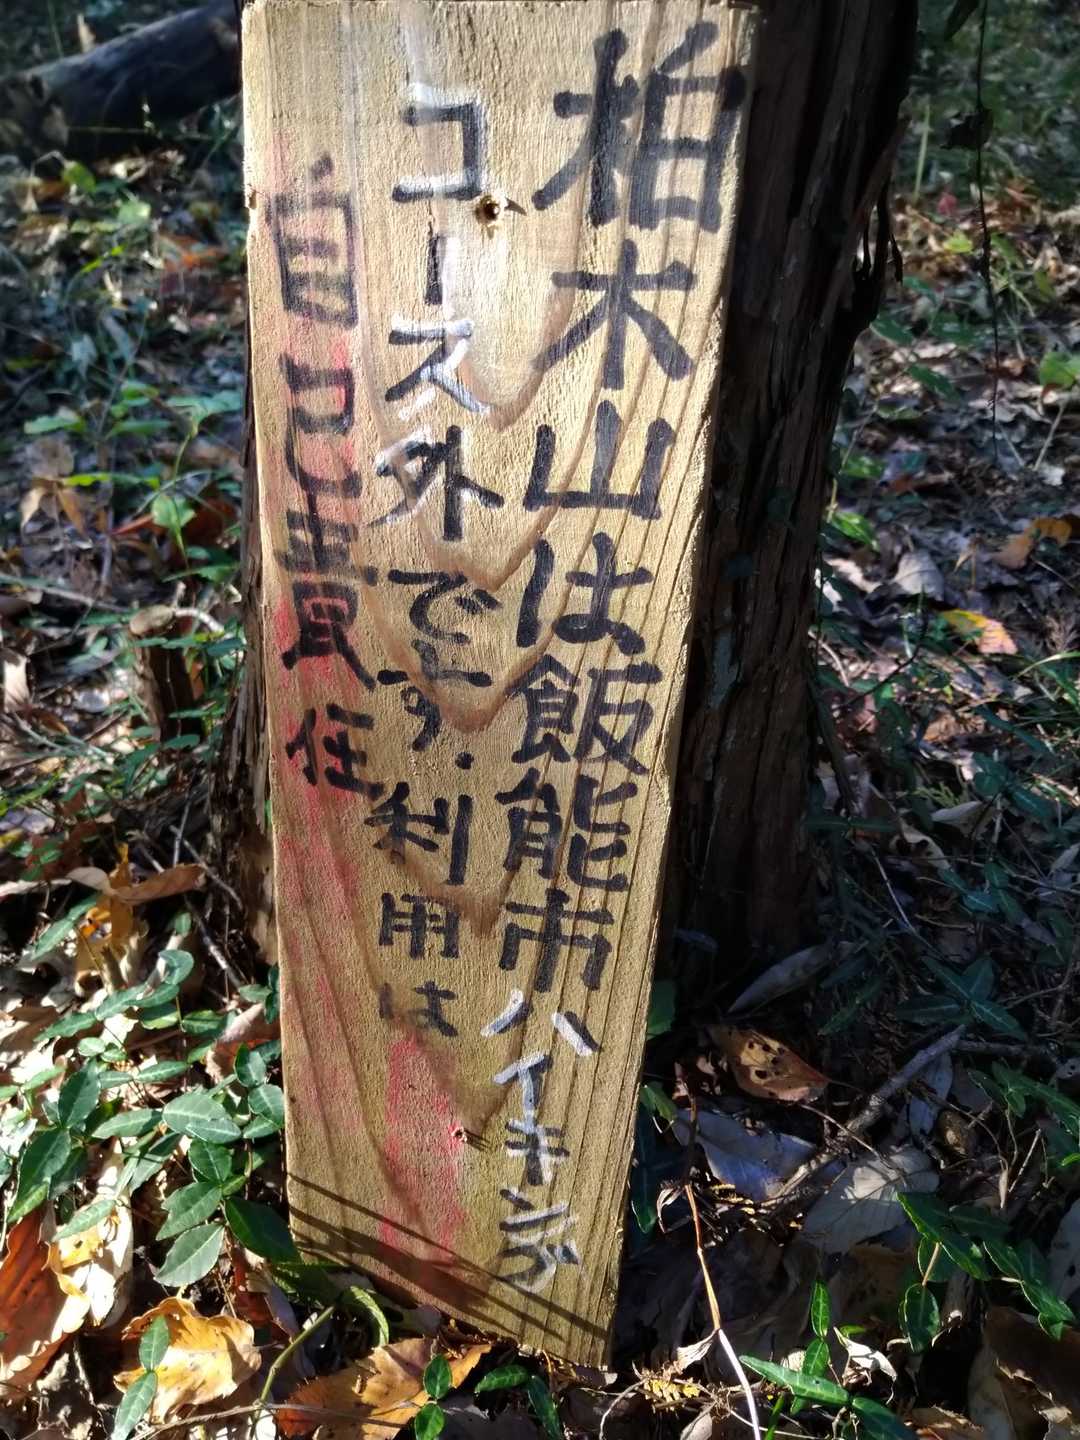 柏木山は飯能市ハイキング
コース外です.利用は
自己責任